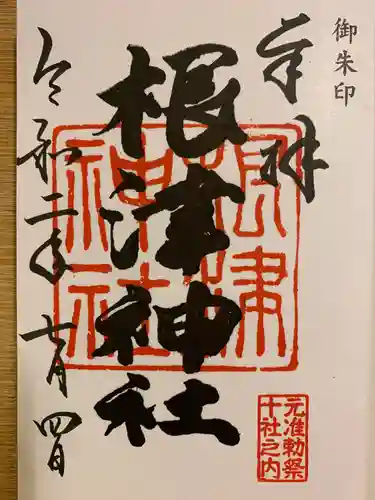 御朱印
奉拝
根津神社
根津神社
令和二年
月四日
元准勅祭
十社之内